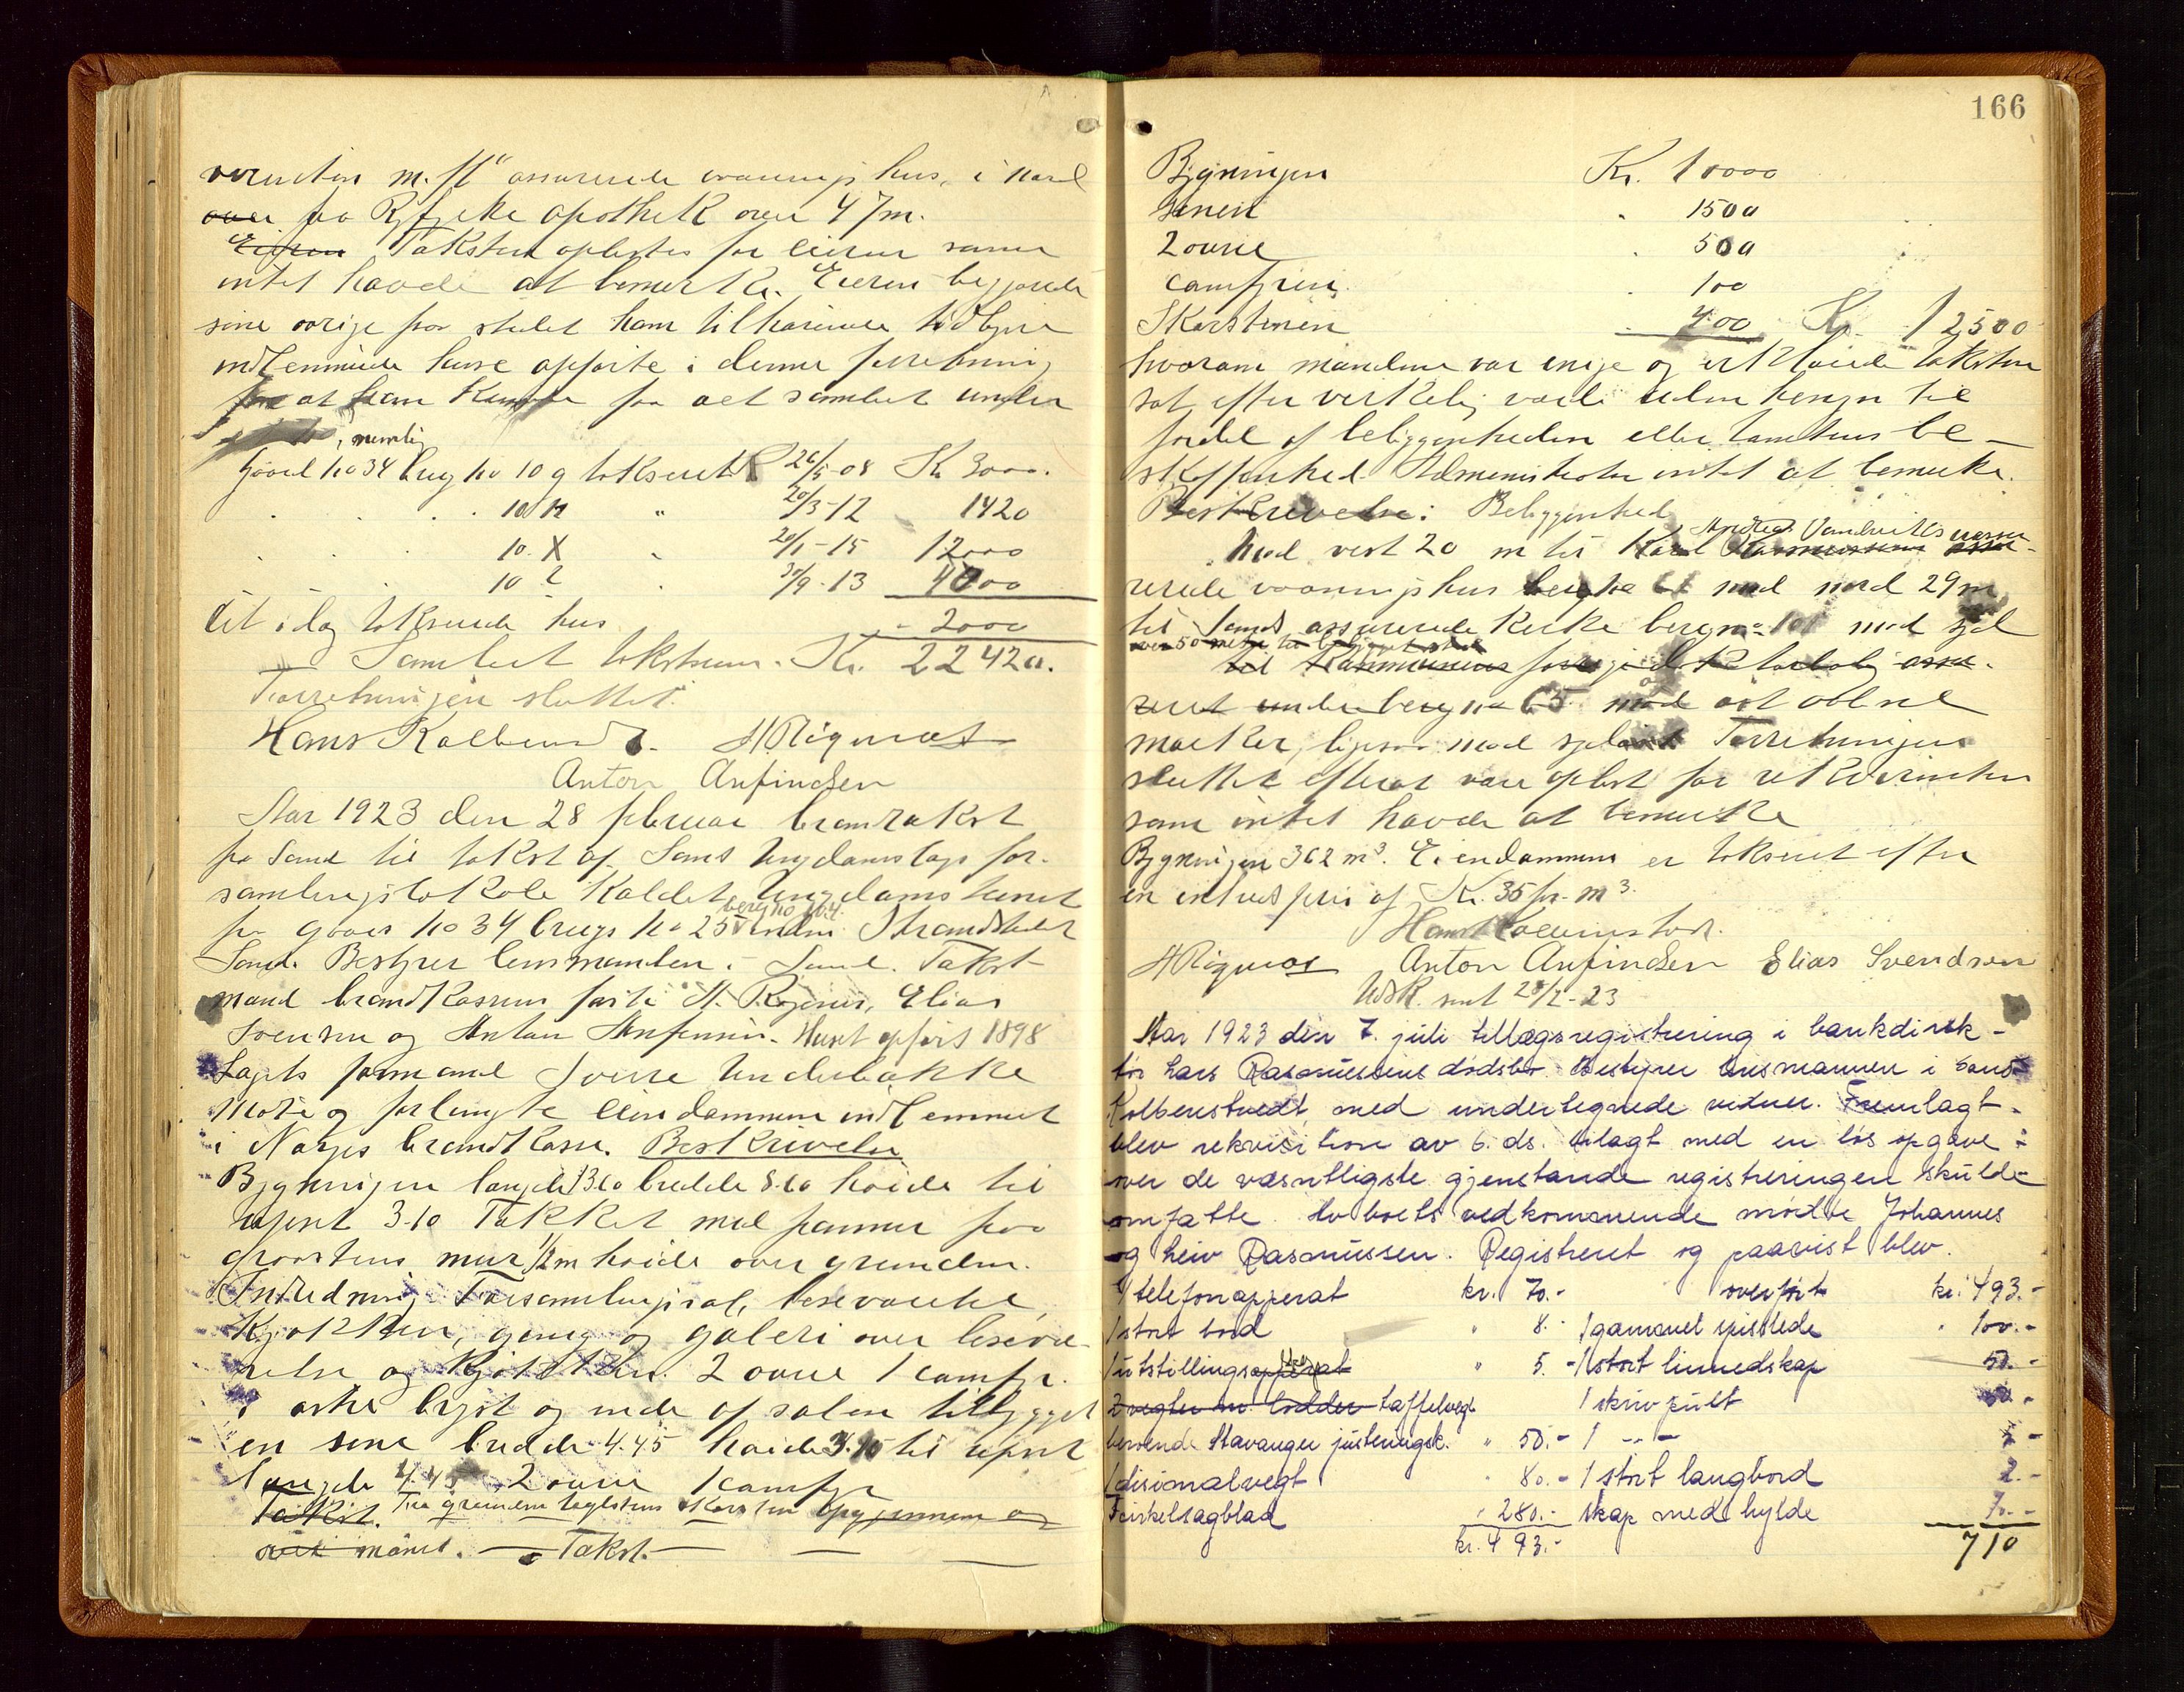 m. fl" assurerede vaaningshus, i nord
over paa Ryfylke apothek over 47 m.
Eieren Taksten oplæstes for eieren som
intet havde at bemerke. Eieren begjærede
sine øvrige paa stedet ham tilhørende
indlemmede huse opførte i denne forretning
for at han kunde faa det samlet under
, nemlig
Gaard no 34 brug no 10 g takseret 26/5-08 Kr. 3000.
" " " 10 h " 20/3-12 1420
" " " 10. X " 20/1-15 12000
10 2 " 30/9-13 4000
Det idag takserede hus - 2000
Samlet takstsum. Kr. 22420.
Forretningen sluttet.
Hans Kolbenstvedt. H Rignæs
Anton Anfindsen
Aar 1923 den 28 februar brandtakst
paa Sand til takst af Sand Ungdomslags for-
samlingslokale kaldet Ungdomshuset
bergno 164.
paa gaard no 34 brugs no 25 under Strandstedet
Sand. Bestyrer lensmanden i Sand. Takst-
mænd brandkassens faste H. Rignæs, Elias
Svensen og Anton Anfinsen. Huset opført 1898
Lagets formand Sverre Underbakke
møtte og forlangte eiendommen indlemmet
i Norges brandkasse. Beskrivelse
Bygningen længde 13.60 bredde 8.60 høide til
ræfset 3.10 Tækket med panner paa
graastens mur 1/2 m høide over grunden.
Indredning Forsamlingssal, læseværelse,
Kjøkken, gang og galeri over læsevæ-
relse og kjøkken. 2 ovne 1 camfr.
i østre og ende af salen tilbygget
en sene bredde 4.45 høide 3.10 til ræfset
længde 4.45 2 ovne 1 camfyr
Takst. Fra grunden teglstens skorsten
malet. Takst.
166
Bygningen Kr. 10000
senen " 1500
2 ovne " 500
camfyren " 100
Skorstenen " 400 Kr. 12500
hvorom mændene var enige og erklærede taksten
sat efter virkelig værdi uden hensyn til
fordel af beliggenheden eller tomtens be-
skaffenhed. Administrator intet at bemerke.
Beskrivelse: Beliggenhed
Andreas Vandviks uassu-
Mod vest 20 m til Karl Rasmussens assu-
rerede vaaningshus bergno 61 mod nord 29 m
til Sands assurerede kirke bergno 101 mod syd
over 50 meter til bebygget sted
til Rasmussens assu-
reret under bergno 65 mod øst aabne
marker, ligesaa mod syd. Forretningen
sluttet efter at være oplæst for rekvirenten
som intet havde at bemerke
Bygningen 362 m3. Eiendommen er takseret efter
en enhedspris af Kr. 35 pr. m3.
Hans Kolbenstvedt.
H Rignæs Anton Anfindsen Elias Svendsen
Utsk. sent 28/2-23
Aar 1923 den 7. juli tillægsregistrering i bankdirek-
tør Lars Rasmussens dødsbo. Bestyrer lensmannen i Sand
Kolbenstvedt, med undertegnede vidner. Fremlagt
blev rekvisition av 6. ds. bilagt med en løs opgave
over de væsentligste gjenstande registreringen skulde
omfatte. For boets vedkommende mødte Johannes
og Leiv Rasmussen. Registreret og paavist blev.
1 telefonapperat kr. 70.- overført kr. 493.-
1 stort bord " 8.- 1 gammel spisslede " 100.-
1 utstillings " 5.- 1 stort linnedskap 50.-
2 vegter m. lodder taffelvegt 1 skrivpult
beroende Stavanger justeringsk. " 50.- 1 -"-
1 disimalvegt " 80.- 1 stort langbord 2.-
Firkelsagblad " 280.- skap med hylde
kr. 493.- 710